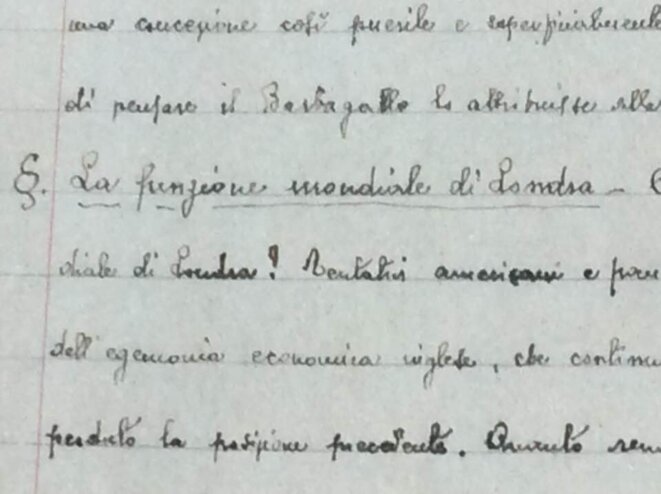 una concezione così puerile e superficialmente
di pensare il Barbagallo lo attribuisse alla
§. La funzione mondiale di Londra –
diale di Londra? Tentativi americani e fran
dell'egemonia economica inglese, che continu
perduto la posizione precedente. Quanto ren